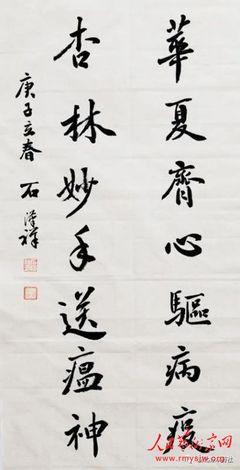 華夏齊心驅病疫
杏林妙手送瘟神
庚子立春 石漢祥
www.rmysjw.com